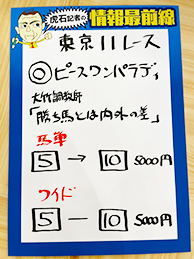 虎石記者の
情報最前線
東京11レース
◎ピースワンパラディ
大竹調教師
「勝ち馬とは内外の差」
馬単
5 → 10 5000円
ワイド
5 — 10 5000円